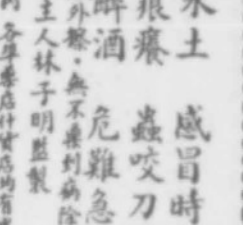 水土　感冒時
痕癢　蟲咬刀
醉酒　危難急
外擦。無不藥到病除
主人林子明監製
各埠藥店什貨店均有